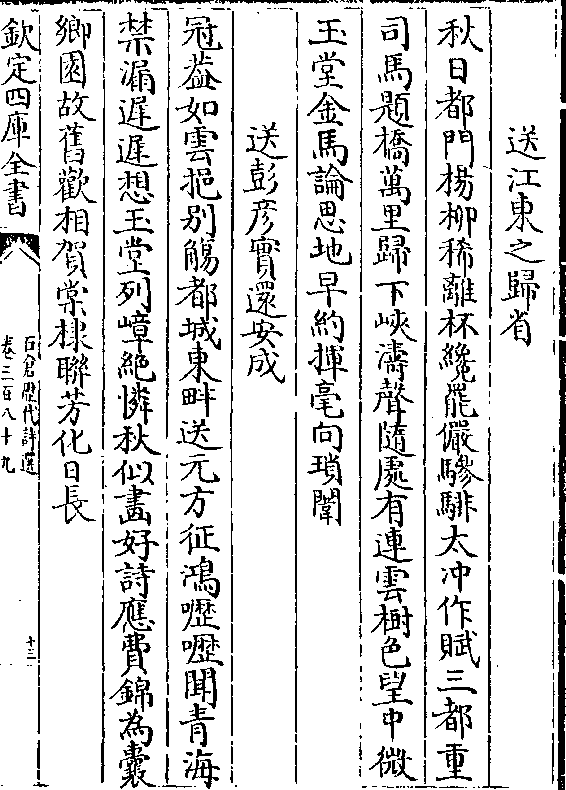 送江東之歸省
秋日都門楊柳稀離杯纔罷儼驂騑太冲作賦三都重
司馬題橋萬里歸下峽濤聲隨處有連雲樹色望中微
玉堂金馬論思地早約揮毫向瑣闈
送彭彦實還安成
冠葢如雲挹别觴都城東畔送元方征鴻嚦嚦聞青海
禁漏遲遲想玉堂列嶂絶憐秋似畵好詩應費錦為囊
鄉園故舊歡相賀棠棣聯芳化日長
欽定四庫全書
石倉歴代詩選
卷三百八十九
十三